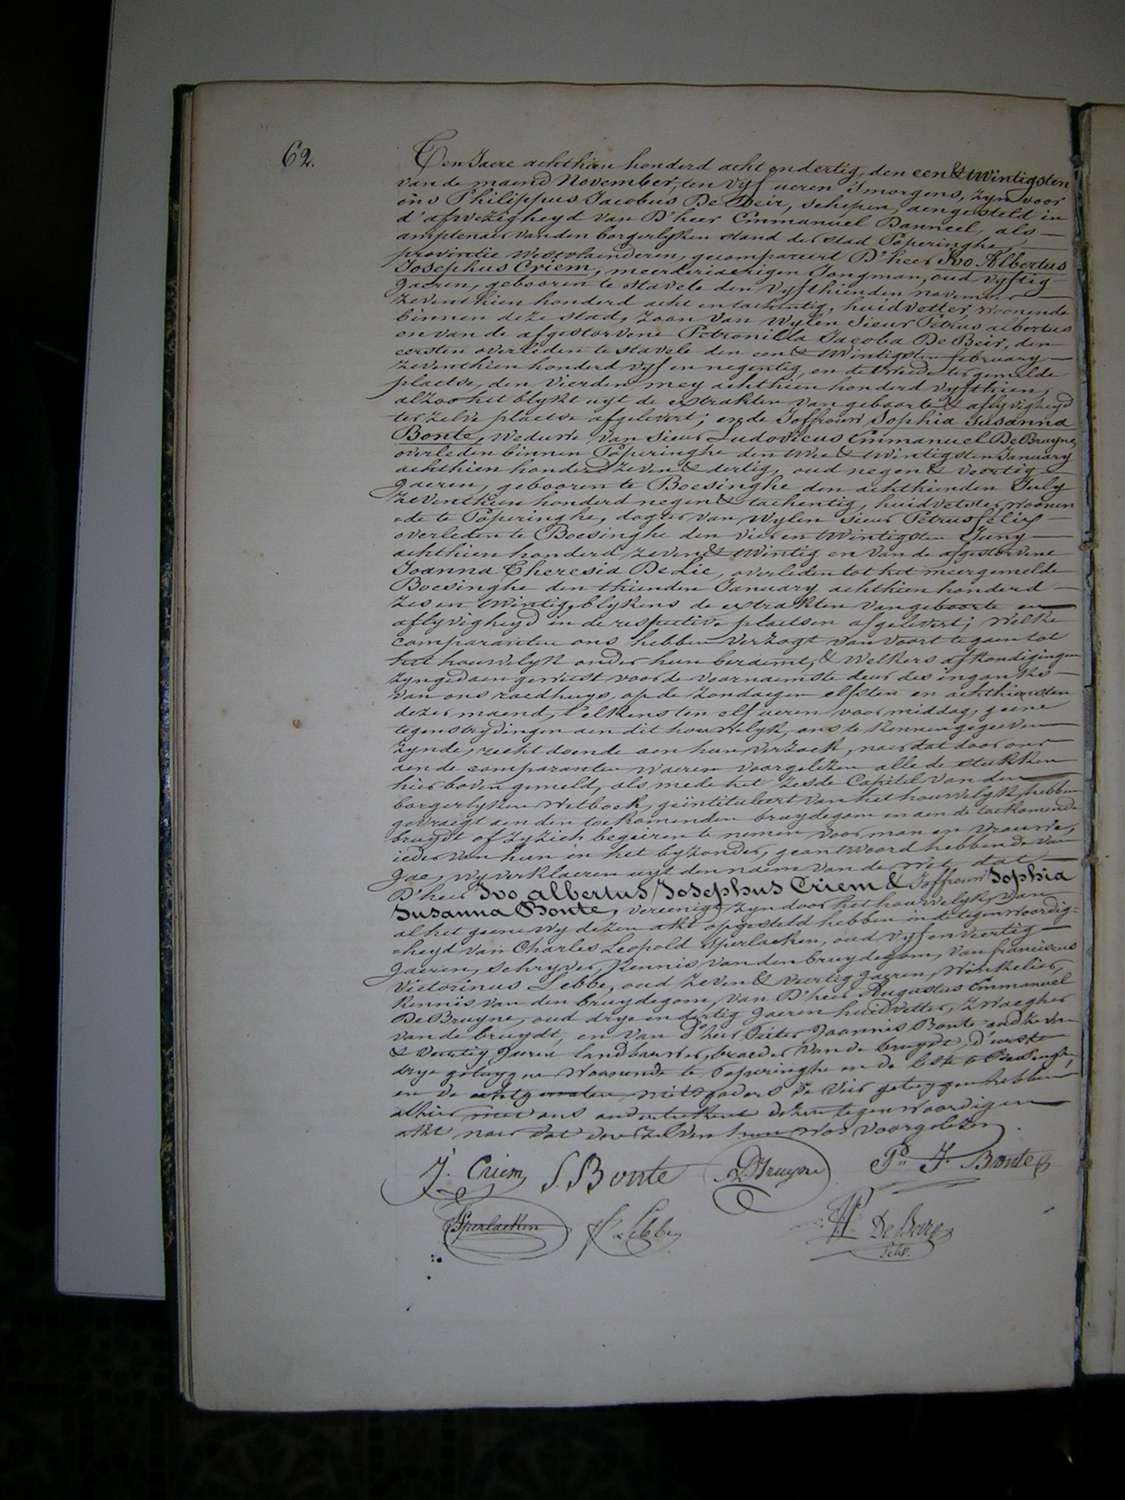 62.
Ten Jaere achthien honderd acht en dertig, den een & twintigsten
van de maend November, ten vyf ueren s'morgens, zyn voor
ons Philippus Jacobus De Beir, schepen, aengesteld in
d'afwezigheyd van D'heer Emmanuel Banneel, als
amptenaer van den borgerlyken stand der stad Poperinghe,
provintie Westvlaenderen, gecompareerd D'heer Ivo Albertus
Josephus Criem, meerderjaerigen Jongman, oud vyftig
Jaeren, gebooren te Stavele den vyfthienden november
zeventhien honderd acht en tachentig, huidvetter, woonende
binnen deze stad, zoon van wylen sieur Petrus albertus
en van de afgestorvene Petronilla Jacoba De Beir, den
eersten overleden te Stavele den een & twintigsten february
zeventhien honderd vyf en negentig, en de tweede ter gemelde
plaetse, den vierden mey achthien honderd vyfthien,
alzoo het blykt uyt de extrakten van geboorte & aflyvigheyd
ter zelve plaetse afgelevert; en de Joffrouw Sophia Susanna
Bonte, weduwe van sieur Ludovicus Emmanuel De Bruyne,
overleden binnen Poperinghe den twee & twintigsten January
achthien honderd zeven & dertig, oud negen & veertig
Jaeren, gebooren te Boesinghe den achthienden July
zeventhien honderd negen & tachentig, huidvetster, woonen
de te Poperinghe, dogter van wylen sieur Petrus felix
overleden te Boesinghe den vier en twintigsten Juny
achthien honderd zeven & twintig en van de afgestorvene
Joanna Theresia Delie, overleden tot het meergemelde
Boesinghe den thienden January achthien honderd
zes en twintig, blykens de extrakten van geboorte en
aflyvigheyd in de respective plaetsen afgelevert; welke
comparanten ons hebben verzogt van voort te gaen tot
het houwelyk onder hun beraemt, & welkers afkondigingen
zyn gedaen geweest voor de voornaemste deur des ingangs
van ons raedhuys, op de zondaegen elfsten en achthiensten
dezer maend, t'elkens ten elf ueren voormiddag; geene
tegenstrydingen aen dit houwelyk ons te kennen gegeven
zynde, recht doende aen hun verzoek, naer dat door ons
aen de comparanten waeren voorgelezen alle de stukken
hier boven gemeld, als mede het zesde Capitel van den
borgerlyken Wetboek, geïntituleert van het houwelyk, hebben
gevraegt aen den toekomenden bruydegom en aen de toekomende
bruydt of zy zich begeiren te nemen voor man en vrouwe,
ieder van hun in het byzonder, geantwoord hebbende van
Jae, wy verklaeren uyt den naem van de Wet, dat
D'heer Ivo Albertus Josephus Criem & Joffrouw Sophia
Susanna Bonte, vereenigt zyn door het houwelyk, van
al het geene wy dezen akt opgesteld hebben in de tegenwoordig-
heyd van Charles Leopold Sperlaeken, oud vyf en veertig
Jaeren, schryver, Kennis van den bruydegom, van franciscus
Victorinus Lebbe, oud zeven & veertig Jaeren, Winkelier,
Kennis van den bruydegom, van D'heer Augustus Emmanuel
De Bruyne, oud drye en dertig Jaeren huidvetter, zwaegher
van de bruydt, en van d'heer Pieter Joannis Bonte oud zeven
& veertig Jaeren landbouwer, broeder van de bruydt, d'eerste
drye getuygen woonende te Poperinghe en de leste te Boesinghe,
en de nitsgaders de vier getuygen hebben
alhier met ons onderteekent dezen tegenwoordigen
akt naer dat door zelven hun was voorgelezen.
J. Criem S. Bonte A DBruyne Pr. J. Bonte
Sperlaeken f. Lebbe Ph. De Beir
Sch.